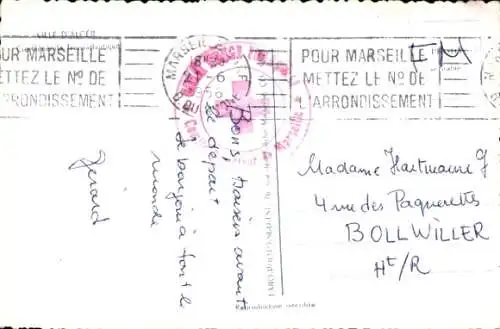 POUR MARSEILLE
METTEZ LE No DE
L'ARRONDISSEMENT
MARSEILLE
POUR MARSEILLE
METTEZ LE No DE
L'ARRONDISSEMENT
Bons baisers avant
le départ
le bonjour à tout le
monde
Gérard
Madame Hartmann G
4 rue des Paquerettes
BOLLWILLER
Ht/R
Reproduction interdite